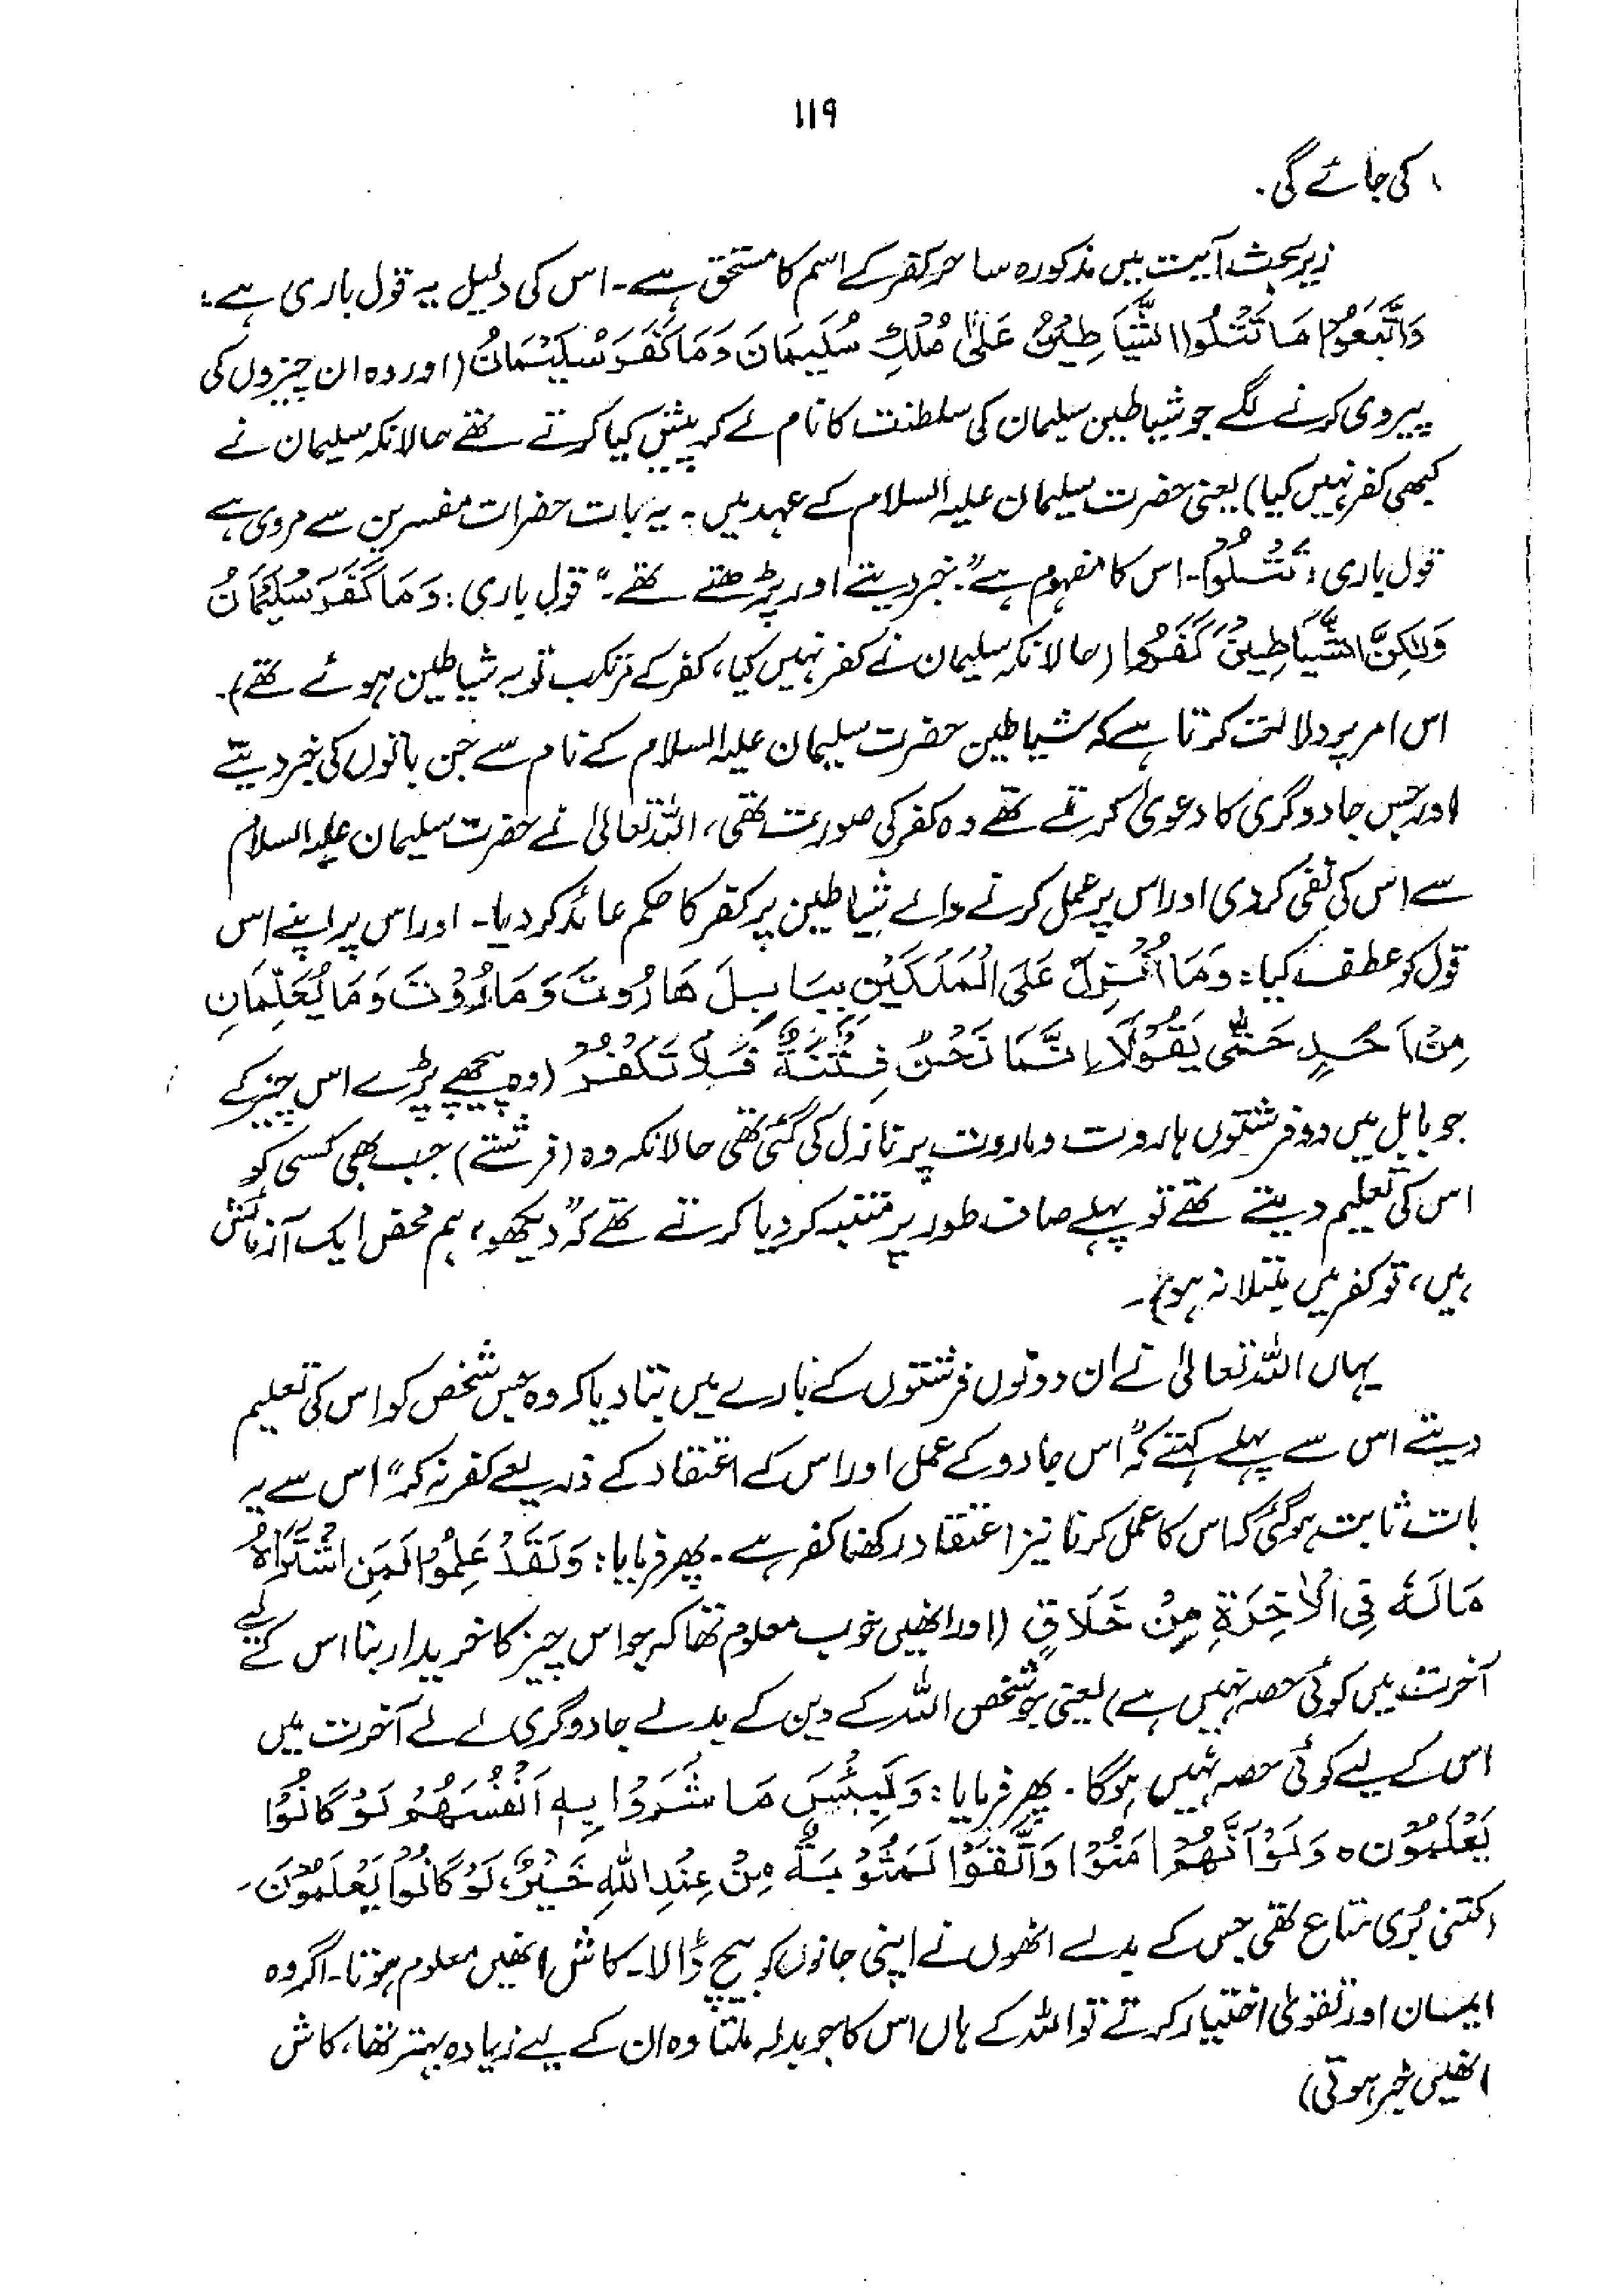 ۱۱۹
کی جائے گی۔
زیر بحث آیت میں مذکورہ ساحر کفر کے اسم کا مستحق ہے۔ اس کی دلیل یہ قول باری ہے:
وَاتَّبَعُوْا مَا تَتْلُوا الشَّيَاطِيْنُ عَلٰى مُلْكِ سُلَيْمَانَ وَمَا كَفَرَ سُلَيْمَانُ (اور وہ ان چیزوں کی
پیروی کرنے لگے جو شیاطین سلیمان کی سلطنت کا نام لے کر پیش کیا کرتے تھے حالانکہ سلیمان نے
کبھی کفر نہیں کیا) یعنی حضرت سلیمان علیہ السلام کے عہد میں۔ یہ بات حضرات مفسرین سے مروی ہے
قول باری: تَتْلُوْا۔ اس کا مفہوم ہے "خبر دیتے اور پڑھتے تھے۔" قول باری: وَمَا كَفَرَ سُلَيْمَانُ
وَلٰكِنَّ الشَّيَاطِيْنَ كَفَرُوا (حالانکہ سلیمان نے کفر نہیں کیا، کفر کے مرتکب تو یہ شیاطین ہوئے تھے)۔
اس امر پر دلالت کرتا ہے کہ شیاطین حضرت سلیمان علیہ السلام کے نام سے جن باتوں کی خبر دیتے
اور جس جادوگری کا دعویٰ کرتے تھے وہ کفر کی صورت تھی، اللہ تعالیٰ نے حضرت سلیمان علیہ السلام
سے اس کی نفی کردی اور اس پر عمل کرنے والے شیاطین پر کفر کا حکم عائد کر دیا۔ اور اس پر اپنے اس
قول کو عطف کیا: وَمَا اُنْزِلَ عَلَى الْمَلَكَيْنِ بِبَابِلَ هَارُوتَ وَمَارُوْتَ وَمَا يُعَلِّمَانِ
مِنْ اَحَدٍ حَتّٰى يَقُوْلَا اِنَّمَا نَحْنُ فِتْنَةٌ فَلَا تَكْفُرْ (وہ پیچھے پڑے اس چیز کے
جو بابل میں دو فرشتوں ہاروت و ماروت پر نازل کی گئی تھی حالانکہ وہ (فرشتے) جب بھی کسی کو
اس کی تعلیم دیتے تھے تو پہلے صاف طور پر متنبہ کر دیا کرتے تھے کہ "دیکھو، ہم محض ایک آزمائش
ہیں، تو کفر میں مبتلا نہ ہو")۔
یہاں اللہ تعالیٰ نے ان دونوں فرشتوں کے بارے میں بتا دیا کہ وہ جس شخص کو اس کی تعلیم
دیتے اس سے پہلے کہتے کہ "اس جادو کے عمل اور اس کے اعتقاد کے ذریعے کفر نہ کر" اس سے یہ
بات ثابت ہو گئی کہ اس کا عمل کرنا نیز اعتقاد رکھنا کفر ہے۔ پھر فرمایا: وَلَقَدْ عَلِمُوْا لَمَنِ اشْتَرَاهُ
مَالَهٗ فِى الْاٰخِرَةِ مِنْ خَلَاقٍ (اور انھیں خوب معلوم تھا کہ جو اس چیز کا خریدار بنا اس کے لیے
آخرت میں کوئی حصہ نہیں ہے) یعنی جو شخص اللہ کے دین کے بدلے جادوگری لے لے آخرت میں
اس کے لیے کوئی حصہ نہیں ہوگا۔ پھر فرمایا: وَلَبِئْسَ مَا شَرَوْا بِهٖ اَنْفُسَهُمْ لَوْ كَانُوْا
يَعْلَمُوْنَ ہ وَلَوْ اَنَّهُمْ اٰمَنُوْا وَاتَّقَوْا لَمَثُوْبَةٌ مِنْ عِنْدِ اللّٰهِ خَيْرٌ، لَوْ كَانُوْا يَعْلَمُوْنَ۔
(کتنی بُری متاع تھی جس کے بدلے انھوں نے اپنی جانوں کو بیچ ڈالا۔ کاش انھیں معلوم ہوتا۔ اگر وہ
ایمان اور تقویٰ اختیار کرتے تو اللہ کے ہاں اس کا جو بدلہ ملتا وہ ان کے لیے زیادہ بہتر تھا، کاش
انھیں خبر ہوتی)